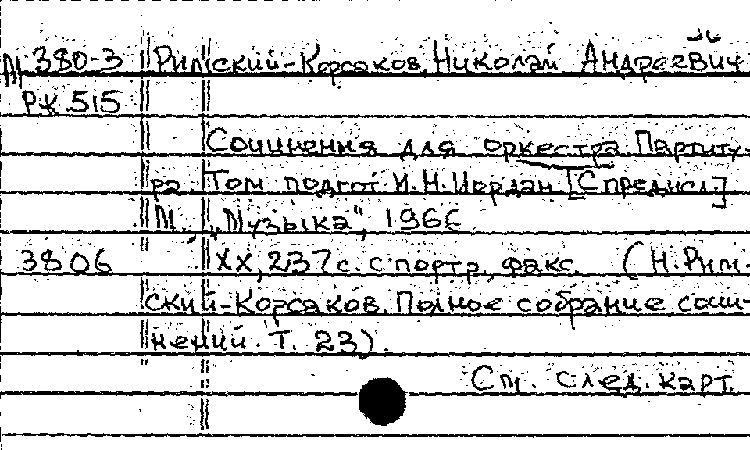 М 380-3 Римский-Корсаков, Николай Андреевич
РЖ 515
Сочинения для оркестра Партиту-
ра. Том подгот. И.Н. Иордан [С предисл.]
М., „Музыка“, 1966
3806 XX, 237 с. с портр., факс. (Н. Рим-
ский-Корсаков. Полное собрание сочи-
нений. Т. 23).
См. след. карт.